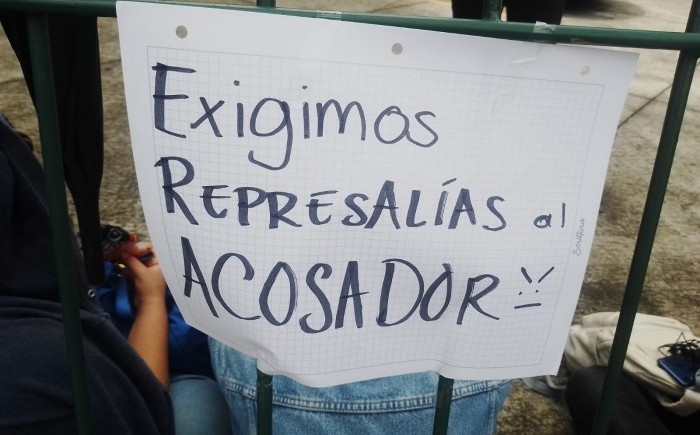 Exigimos
REPRESALÍAS al
ACOSADOR